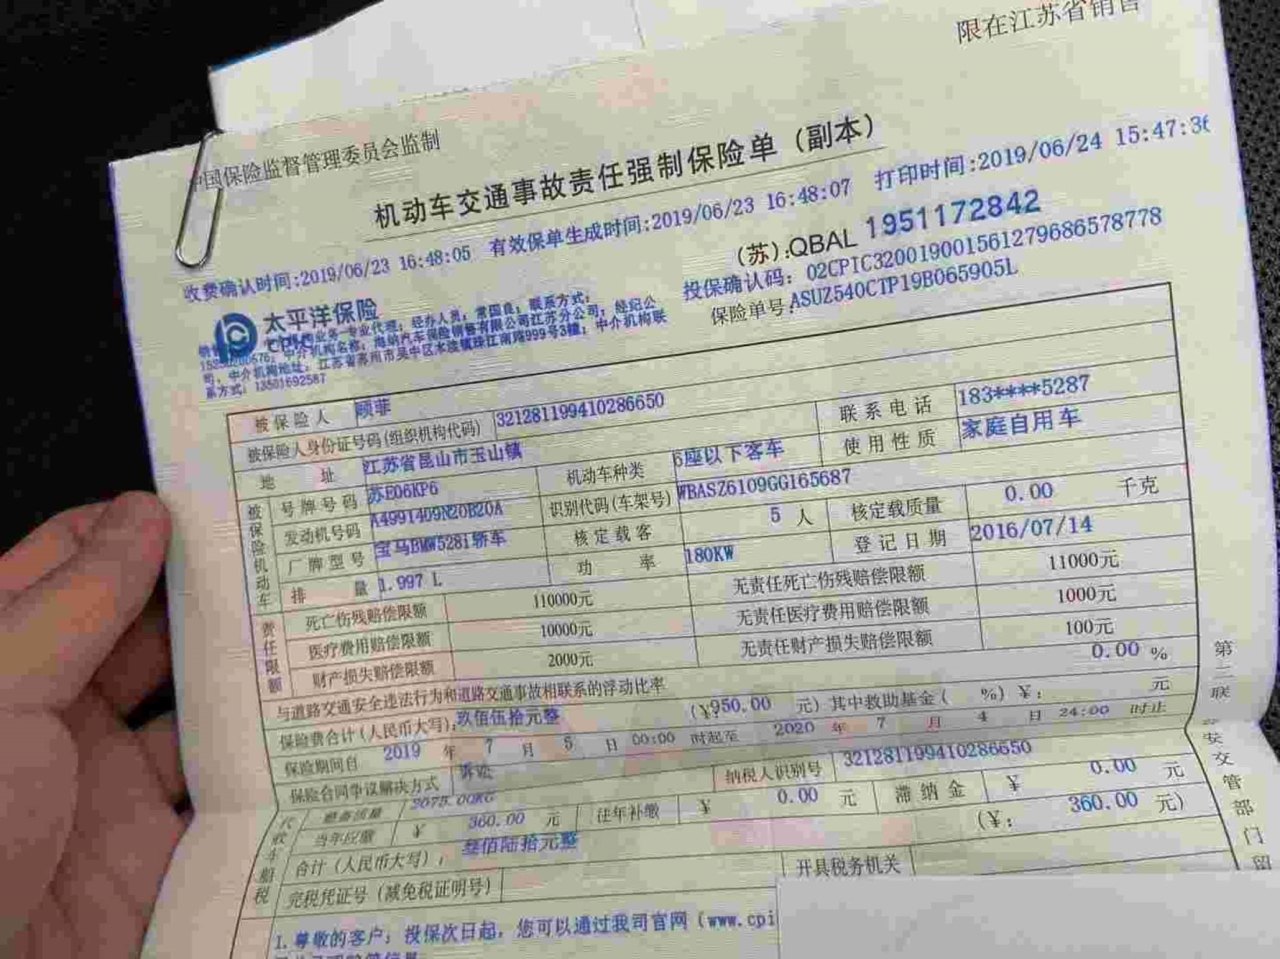 限在江苏省销售
中国保险监督管理委员会监制
机动车交通事故责任强制保险单（副本）
收费确认时间:2019/06/23 16:48:05 有效保单生成时间:2019/06/23 16:48:07 打印时间:2019/06/24 15:47:36
（苏）:QBAL 1951172842
投保确认码：02CPIC320019001561279686578778
保险单号:ASUZ540CTP19B065905L
太平洋保险
CPIC
专业代理；经办人员：常国良；联系方式：
中介机构名称：海纳汽车保险销售有限公司江苏分公司；经纪公
司，中介机构地址：江苏省苏州市吴中区木渎镇珠江南路999号3幢；中介机构联
系方式：13501692587
被保险人 顾菲
被保险人身份证号码(组织机构代码) 321281199410286650
地址 江苏省昆山市玉山镇 联系电话 183****5287
被保险机动车 号牌号码 苏E06KP6 机动车种类 6座以下客车 使用性质 家庭自用车
发动机号码 A4991409N20B20A 识别代码(车架号) WBASZ6109GG165687
厂牌型号 宝马BMW528i轿车 核定载客 5 人 核定载质量 0.00 千克
排量 1.997 L 功率 180KW 登记日期 2016/07/14
责任限额 死亡伤残赔偿限额 110000元 无责任死亡伤残赔偿限额 11000元
医疗费用赔偿限额 10000元 无责任医疗费用赔偿限额 1000元
财产损失赔偿限额 2000元 无责任财产损失赔偿限额 100元
与道路交通安全违法行为和道路交通事故相联系的浮动比率 0.00 %
保险费合计(人民币大写)：玖佰伍拾元整 (¥:950.00 元) 其中救助基金( %) ¥: 元
保险期间自 2019 年 7 月 5 日 00:00 时起至 2020 年 7 月 4 日 24:00 时止
保险合同争议解决方式 诉讼
代收车船税 整备质量 2075.00KG 纳税人识别号 321281199410286650
当年应缴 ¥ 360.00 元 往年补缴 ¥ 0.00 元 滞纳金 ¥ 0.00 元
合计(人民币大写)：叁佰陆拾元整 (¥: 360.00 元)
完税凭证号(减免税证明号) 开具税务机关
1.尊敬的客户：投保次日起，您可以通过我司官网(www.cpi
第二联
交管部门留